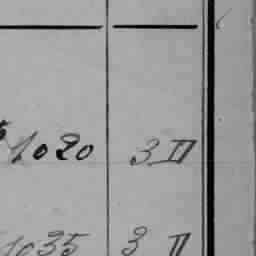 1020 3 II
1035 3 II